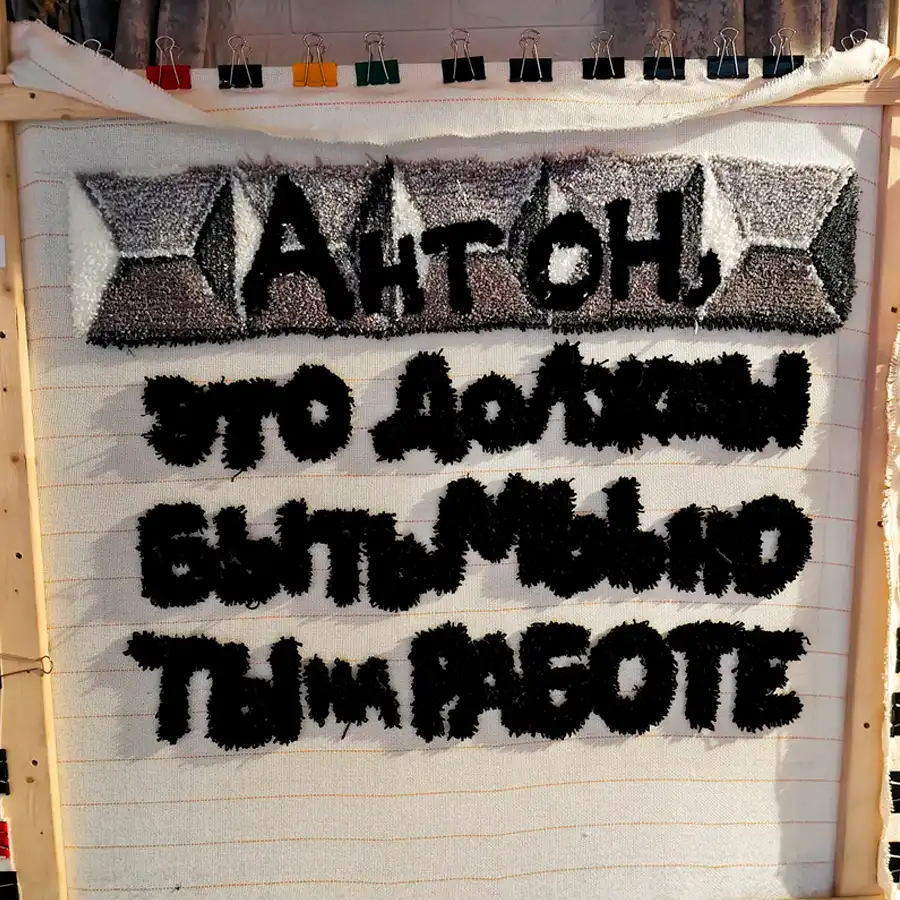 АНТОН,
ЭТО ДОЛЖНЫ
БЫТЬ МЫ НО
ТЫ НА РАБОТЕ